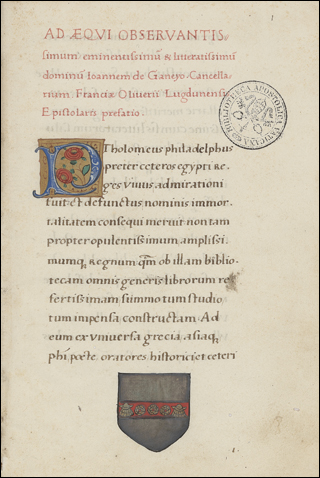 AD ÆQVI OBSERVANTIS
simum eminentissimū & litteratissimū
dominū Ioannem de Ganeyo Cancella
rium Franciæ Oliuerii Lugdunensis
Epistolaris prefatio.
PTholomeus philadelphus
preter ceteros egypti re
ges viuus admirationi
fuit et defunctus nominis immor
talitatem consequi meruit non tam
propter opulentissimum amplissi
mumq; Regnum q̄m ob illam biblio
tecam omnis generis librorum re
fertissimam summo tum studio
tum impensa constructam. Ad
eum ex vniuersa grecia asiaq;
phi poete oratores historici et ceteri
BIBLIOTHECA APOSTOLICA VATICANA